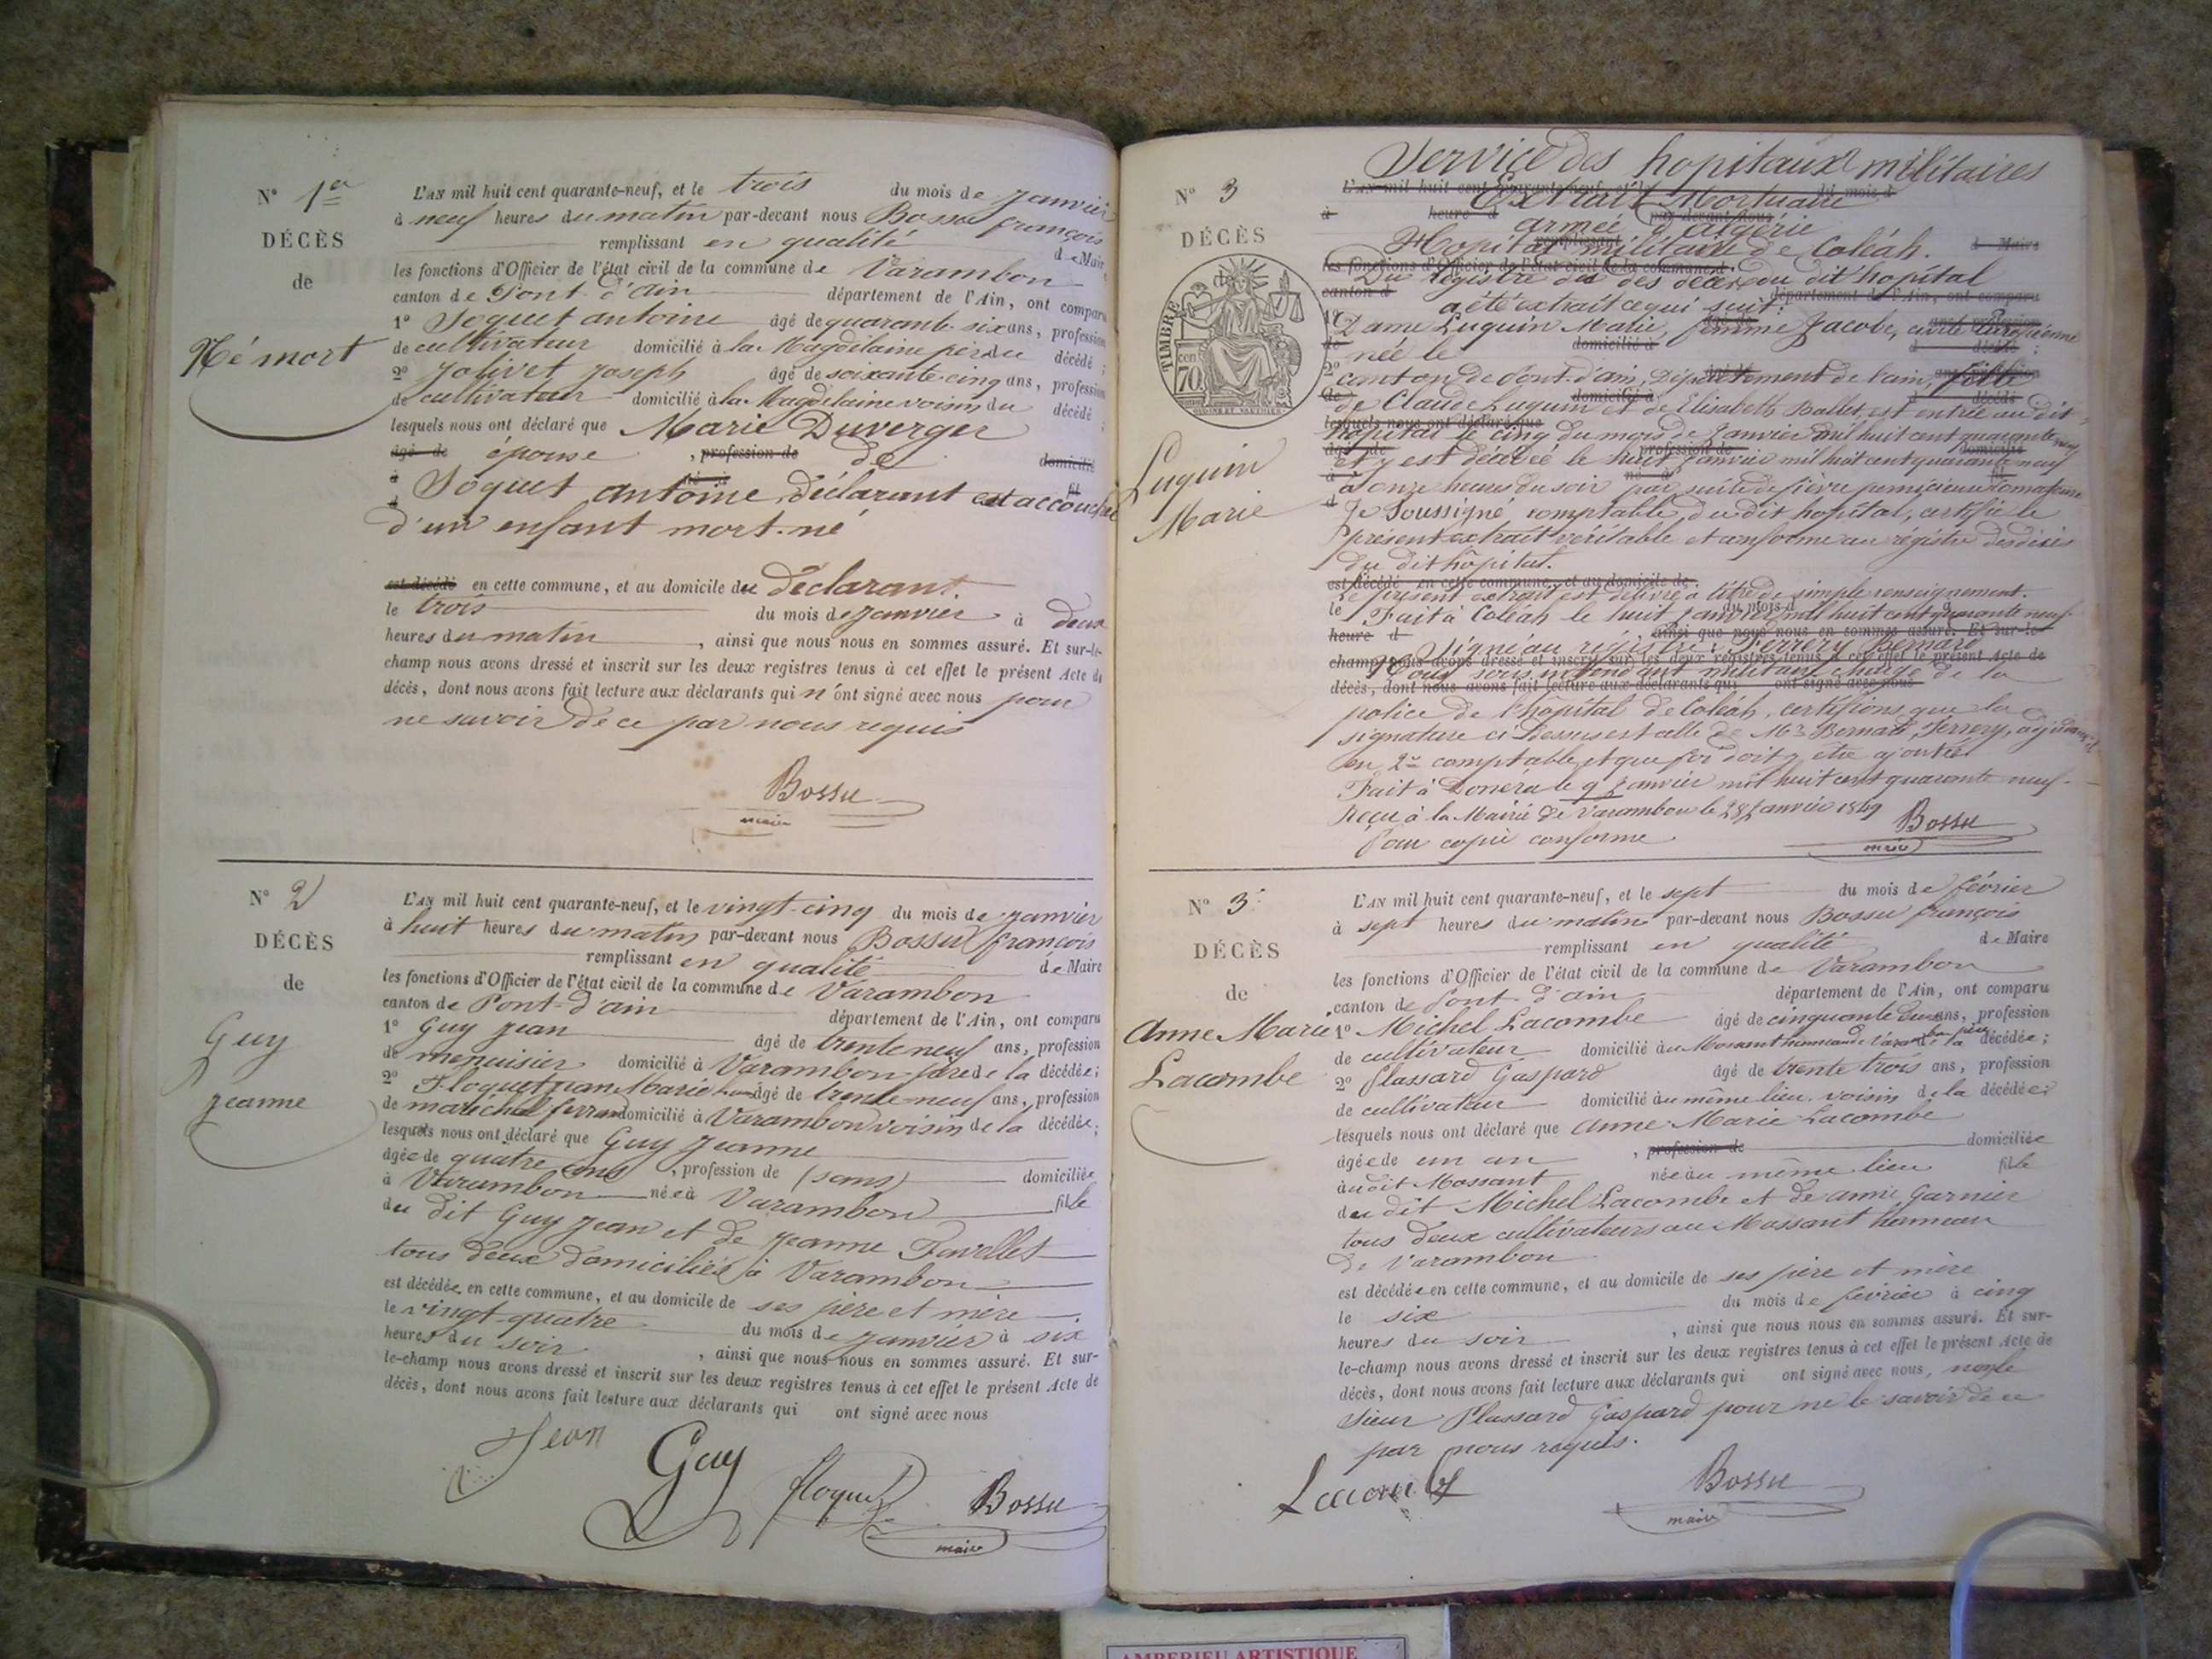 N° 1er
DÉCÈS
de
Né mort
L'AN mil huit cent quarante-neuf, et le trois du mois de janvier
à neuf heures du matin par-devant nous Bossu françois
remplissant en qualité de Maire
les fonctions d'Officier de l'état civil de la commune de Varambon
canton de Pont d'ain département de l'Ain, ont comparu
1° Soquet antoine âgé de quarante six ans, profession
de cultivateur domicilié à la Magdelaine père du décédé ;
2° Jolivet joseph âgé de soixante-cinq ans, profession
de cultivateur domicilié à la Magdelaine voisin du décédé ;
lesquels nous ont déclaré que Marie Duverger
âgé de épouse , profession de de domicilié
à Soquet antoine, déclarant est accouchée
d'un enfant mort-né
est décédé en cette commune, et au domicile du déclarant.
le trois du mois de janvier à deux
heures du matin , ainsi que nous nous en sommes assuré. Et sur-le-
champ nous avons dressé et inscrit sur les deux registres tenus à cet effet le présent Acte de
décès, dont nous avons fait lecture aux déclarants qui n'ont signé avec nous pour
ne savoir de ce par nous requis
Bossu
maire
N° 2
DÉCÈS
de
Guy
jeanne
L'AN mil huit cent quarante-neuf, et le vingt-cinq du mois de janvier
à huit heures du matin par-devant nous Bossu françois
remplissant en qualité de Maire
les fonctions d'Officier de l'état civil de la commune de Varambon
canton de Pont-d'ain département de l'Ain, ont comparu
1° Guy jean âgé de trente neuf ans, profession
de menuisier domicilié à Varambon père de la décédée ;
2° Floquet jean Marie âgé de trente-neuf ans, profession
de maréchal ferrand domicilié à Varambon voisin de la décédée ;
lesquels nous ont déclaré que Guy jeanne
âgée de quatre ans , profession de (sans) domiciliée
à Varambon née à Varambon fille
du dit Guy jean et de jeanne Favellet
tous deux domiciliés à Varambon
est décédée en cette commune, et au domicile de ses père et mère
le vingt-quatre du mois de janvier à six
heures du soir , ainsi que nous nous en sommes assuré. Et sur-
le-champ nous avons dressé et inscrit sur les deux registres tenus à cet effet le présent Acte de
décès, dont nous avons fait lecture aux déclarants qui ont signé avec nous
Jean Guy floquet Bossu
maire
N° 3
DÉCÈS
TIMBRE
70 cen
Luquin
Marie
Service des hopitaux militaires
Extrait Mortuaire
armée d'algérie
Hopital militaire de Coléah.
Du registre des décès du dit hopital
a été extrait ce qui suit :
Dame Luquin Marie, femme Jacob, civile Européenne
née le
canton de Pont-d'ain, Département de l'ain, fille
de Claude Luquin et de Elisabeth Ballet, est entrée au dit
hopital le cinq du mois de Janvier mil huit cent quarante neuf
et y est décédée le huit janvier mil huit cent quarante neuf
à onze heures du soir par suite de fièvre pernicieuse comateuse
Je Soussigné comptable du dit hopital, certifie le
présent extrait véritable et conforme au registre des décès
du dit hôpital.
Le présent extrait est délivré à titre de simple renseignement.
Fait à Coléah le huit janvier mil huit cent quarante neuf
Signé au registre : Ferrery Bernard
Nous sous intendant militaire chargé de la
police de l'hopital de Coléah, certifions que la
signature ci dessus est celle de Mr Bernard, Ferrery, adjudant
en 2e comptable et que foi doit y être ajoutée
Fait à le 9 Janvier mil huit cent quarante neuf.
Reçu à la Mairie de Varambon le 28 janvier 1849
Pour copie conforme
Bossu
maire
N° 3
DÉCÈS
de
Anne Marie
Lacombe
L'AN mil huit cent quarante-neuf, et le sept du mois de février
à sept heures du matin par-devant nous Bossu françois
remplissant en qualité de Maire
les fonctions d'Officier de l'état civil de la commune de Varambon
canton de Pont d'ain département de l'Ain, ont comparu
1° Michel Lacombe âgé de cinquante deux ans, profession
de cultivateur domicilié au Mossant hameau de Varambon père de la décédée ;
2° Plassard Gaspard âgé de trente trois ans, profession
de cultivateur domicilié au même lieu voisin de la décédée ;
lesquels nous ont déclaré que Anne Marie Lacombe
âgée de un an , profession de domiciliée
au dit Mossant née au même lieu fille
du dit Michel Lacombe et de anne Garnier
tous deux cultivateurs au Mossant hameau
de Varambon
est décédée en cette commune, et au domicile de ses père et mère
le six du mois de février à cinq
heures du soir , ainsi que nous nous en sommes assuré. Et sur-
le-champ nous avons dressé et inscrit sur les deux registres tenus à cet effet le présent Acte de
décès, dont nous avons fait lecture aux déclarants qui ont signé avec nous, non le
sieur Plassard Gaspard pour ne le savoir de ce
par nous requis.
Lacombe Bossu
maire
AMBERIEU ARTISTIQUE